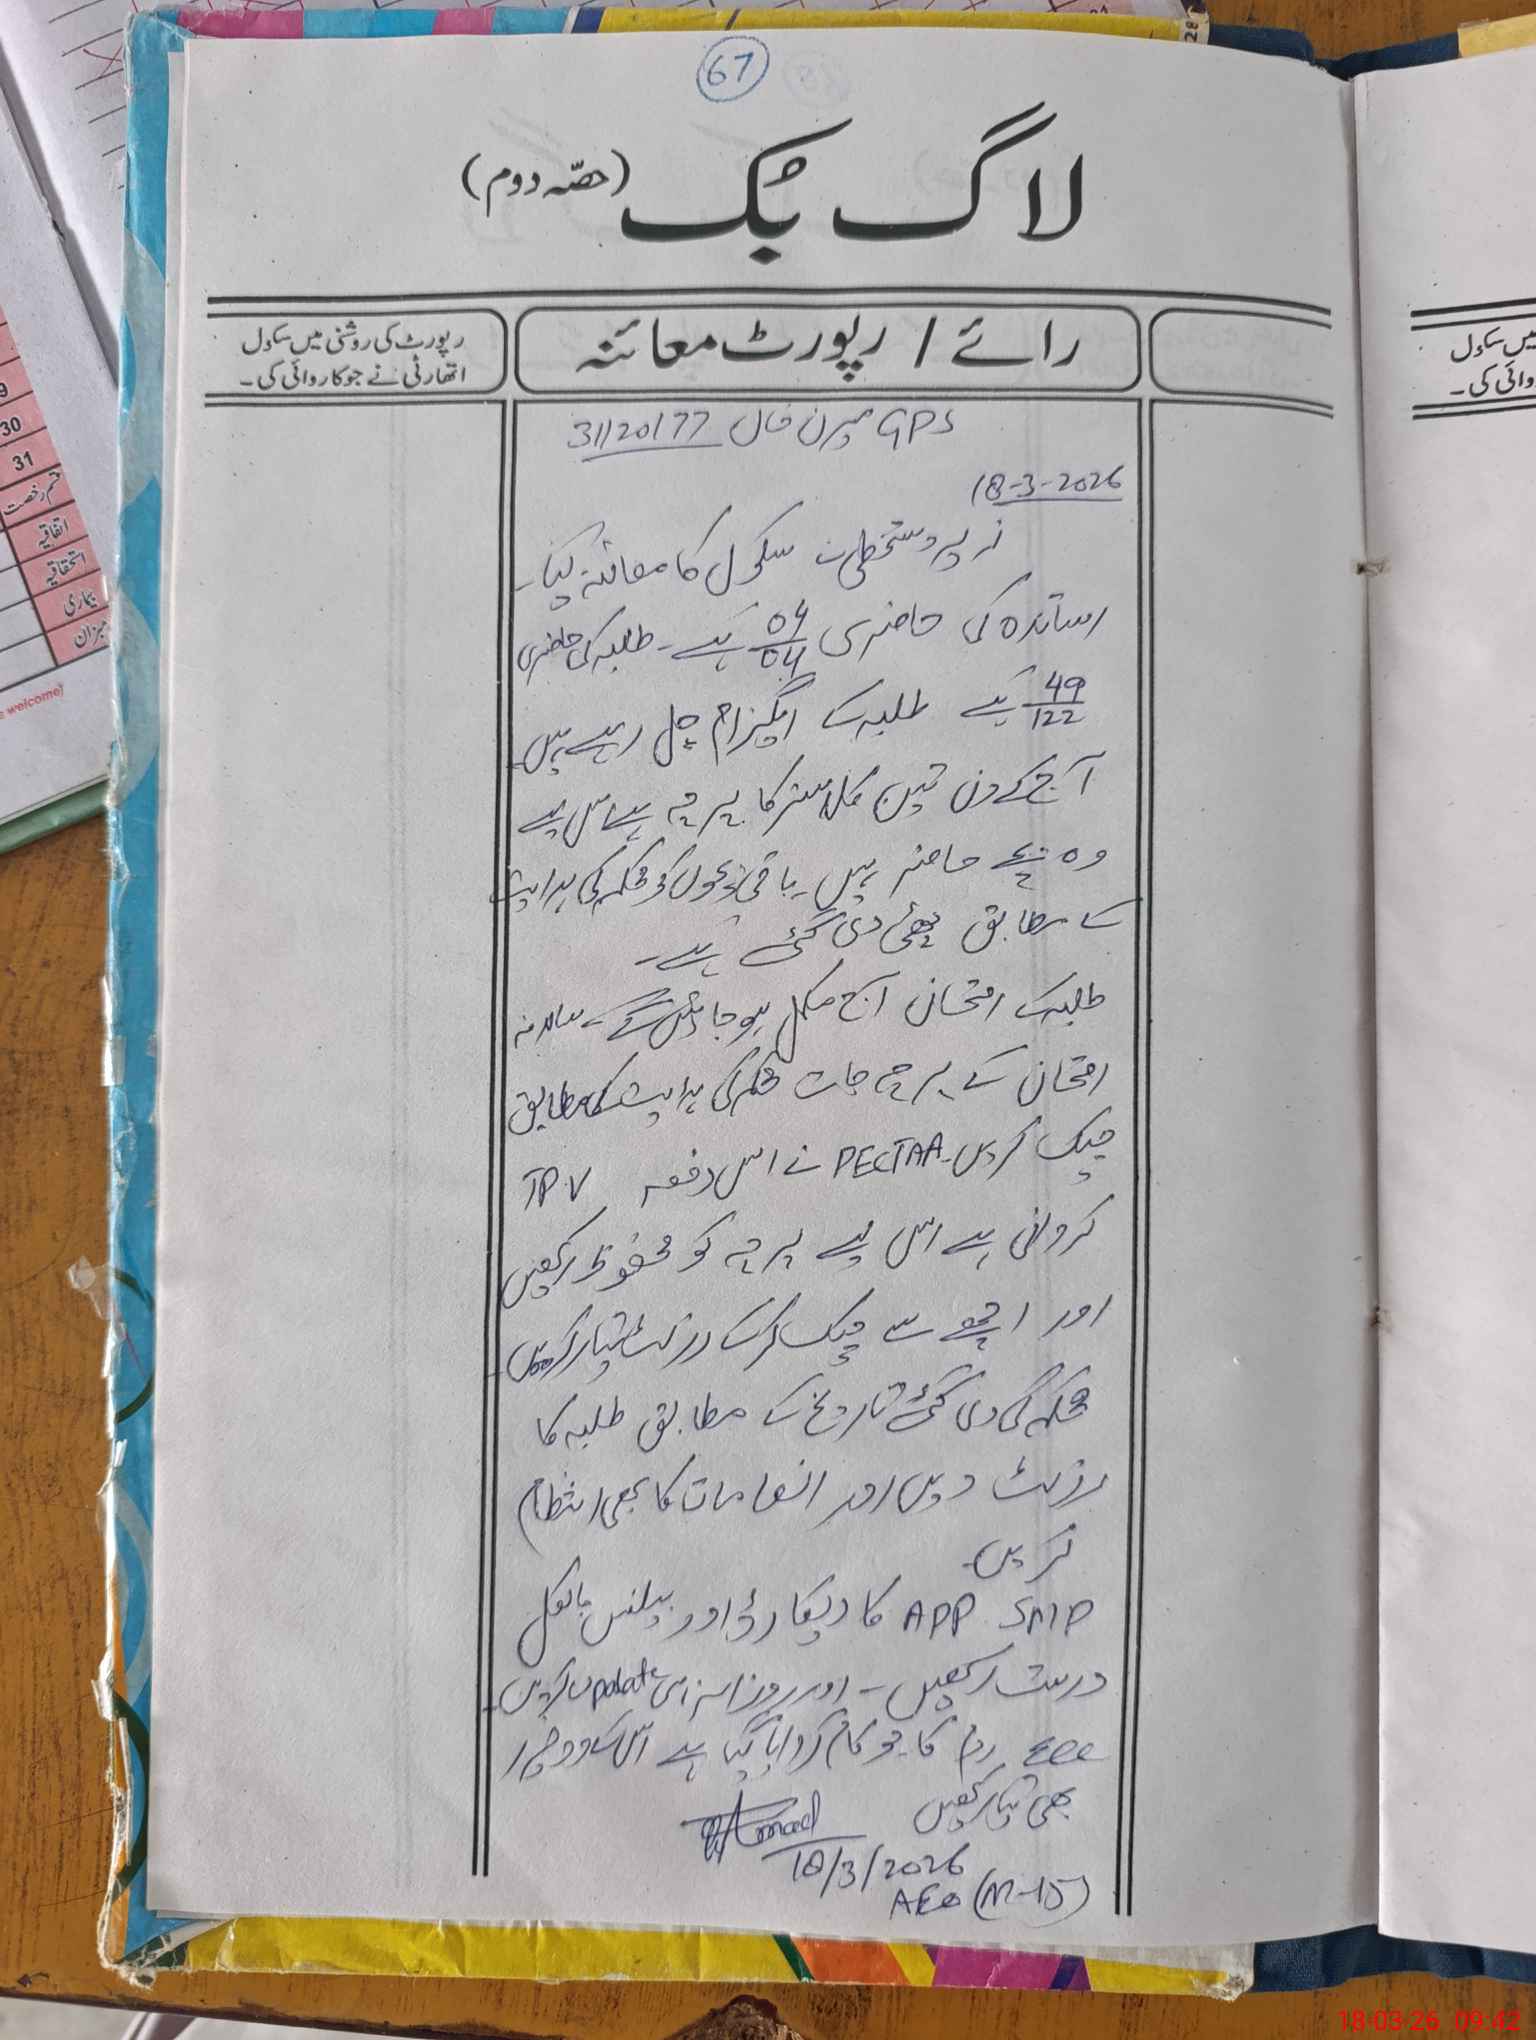 67
لاگ بُک (حصّہ دوم)
رائے / رپورٹ معائنہ
رپورٹ کی روشنی میں سکول
اتھارٹی نے جو کاروائی کی۔
GPS میرن خان 31120177
18-3-2026
زیر دستخطی نے سکول کا معائنہ کیا۔
اساتذہ کی حاضری 04/04 ہے۔ طلبہ کی حاضری
49/122 ہے طلبہ کے ایگزام چل رہے ہیں۔
آج کے دن تین کلاسز کا پرچہ ہے اس لیے
وہ بچے حاضر ہیں۔ باقی بچوں کو محکمہ کی ہدایت
کے مطابق چھٹی دی گئی ہے۔
طلبہ کے امتحان آج مکمل ہو جائیں گے۔ سالانہ
امتحان کے پرچہ جات محکمہ کی ہدایت کے مطابق
چیک کریں۔ PECTAA نے اس دفعہ TPV
کروانی ہے اس لیے پرچہ کو محفوظ رکھیں
اور اچھے سے چیک کر کے رزلٹ تیار کریں۔
محکمہ کی دی گئی تاریخ کے مطابق طلبہ کا
رزلٹ دیں اور انعامات کا بھی انتظام
کریں۔
SMP APP کا ریکارڈ اور بیلنس بالکل
درست رکھیں۔ اور روزانہ اسے update کریں۔
ECE روم کا جو کام کروایا گیا ہے اس کے ووچرز
بھی تیار رکھیں
Ahmad
18/3/2026
AEO (M-15)
میں سکول
30
31
قسم رخصت
اتفاقیہ
استحقاقیہ
بیماری
میزان
welcome)
28
18-03-26 09:42